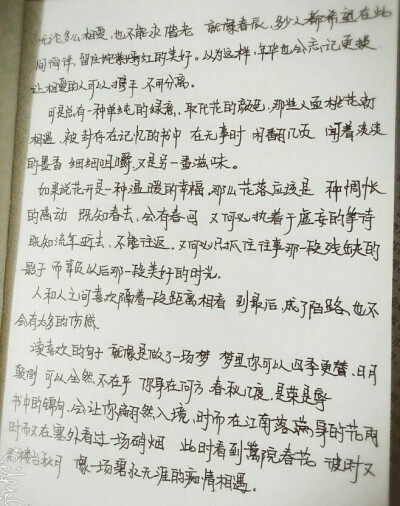 无论多么相爱，也不能永偕老 就像春辰，多少人都希望在此
间徜徉，留住姹紫嫣红的美好。以为这样，年华也会忘记更换
让相爱的人可以携手 不用分离。
可是总有一种单纯的绿意，取代花的颜色，那些人面桃花初
相遇，被封存在记忆的书中 在无事时 闲翻几页 闻着淡淡
的墨香 细细咀嚼，又是另一番滋味。
如果说花开是一种温暖的幸福，那么花落应该是一种惆怅
的感动 既知春去，会有春回 又何必执着于虚妄的等待
既知流年逝去，不能往返，又何必只抓住往事那一段残缺的
影子 而辜负以后那一段美好的时光。
人和人之间喜欢隔着一段距离相看 到最后，成了陌路，也不
会有太多的伤感
读喜欢的句子 就像是做了一场梦 梦里你可以四季更替，日月
颠倒 可以全然不在乎 你身在何方 春秋几度，是荣是辱
书中的锦句，会让你翩然入境，时而在江南落满身的花雨
时而又在塞外看过一场硝烟 此时看到篱院春花 彼时又
楼台秋月 像一场碧水无涯的痴情相遇。